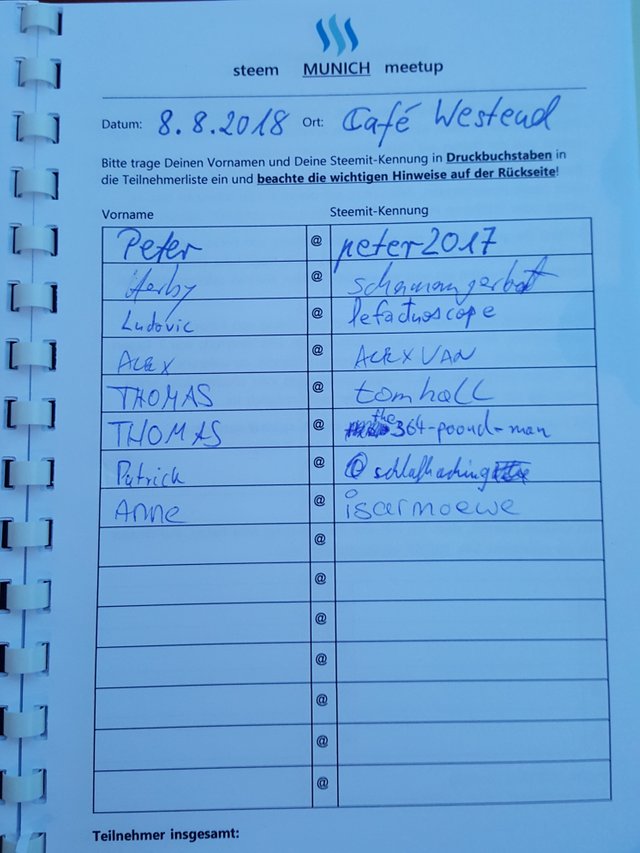 steem MUNICH meetup
Datum: 8.8.2018 Ort: Café Westend
Bitte trage Deinen Vornamen und Deine Steemit-Kennung in Druckbuchstaben in
die Teilnehmerliste ein und beachte die wichtigen Hinweise auf der Rückseite!
Vorname Steemit-Kennung
Peter @ peter2017
Herby @
Ludovic @ lefactuoscope
ALEX @ ALEXVAN
THOMAS @ tomhall
THOMAS @ the364-pound-man
Patrick @ @schlafhacking
Anne @ isarmoewe
@
@
@
@
@
@
@
Teilnehmer insgesamt: